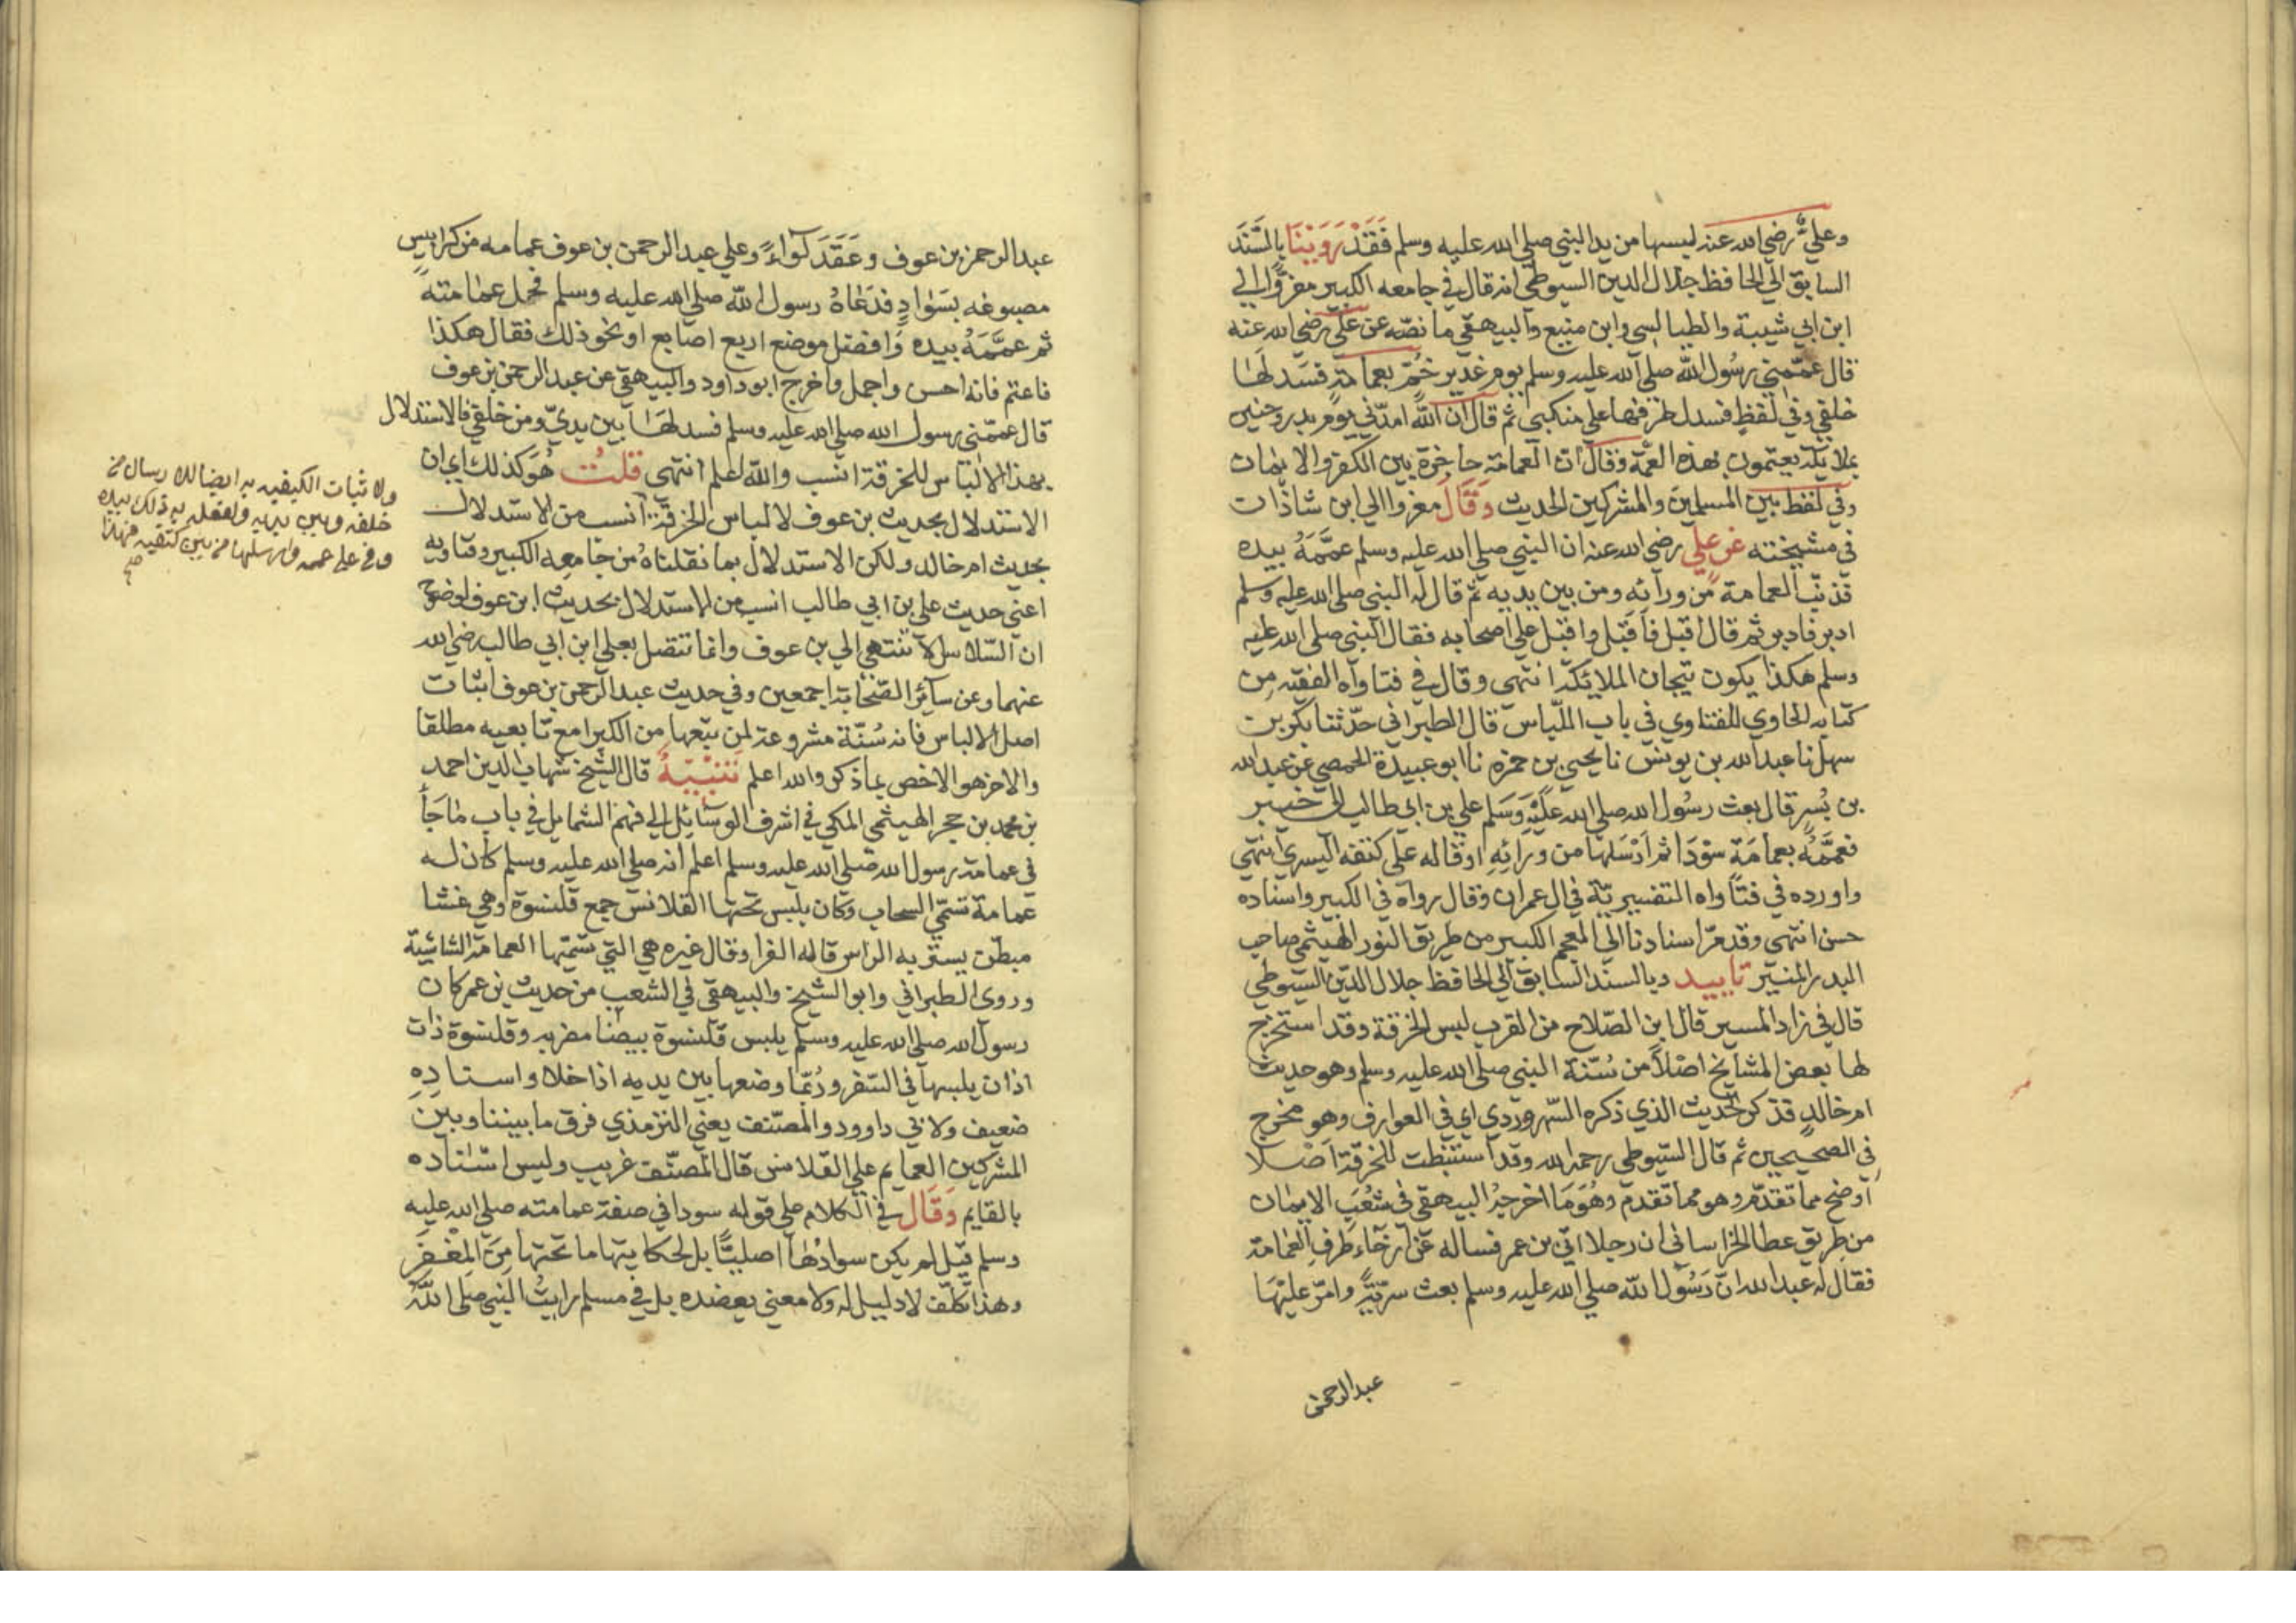 وعليّ رضي الله عنه لبسها من يد النبي صلى الله عليه وسلم فَقَدْ رَوَيْنَا بالسَّنَد
السابق الي الحافظ جلال الدين السيوطي انه قال في جامعه الكبير معزوًّا الي
ابن ابي شيبة والطيالسي وابن منيع والبيهقي ما نصّه عن علي رضي الله عنه
قال عمّمني رسُول الله صلى الله عليه وسلم يوم غدير خُمّ بعمامة فسدلها
خلفي وفي لفظٍ فسدل طرفها علي منكبي ثم قال ان الله امدّني يوم بدر وحنين
بملايكة يعتمون هذه العمّة وقال ان العمامة حاجزة بين الكفر والايمان
وفي لفظ بين المسلمين والمشركين الحديث وَقَالَ معزوا الي ابن شاذات
في مشيخته عن علي رضي الله عنه ان النبي صلى الله عليه وسلم عمَّمَهُ بيده
فذنّب العمامة من ورآئه ومن بين يديه ثم قال له النبي صلى الله عليه وسلم
ادبر فادبر ثم قال اقبل فَاَقبَل واقبل علي اصحابه فقال النبي صلى الله عليه
وسلم هكذا يكون تيجان الملايكة انتهي وقال في فتاواه الفقيه من
كتابه الحاوي للفتاوي في باب اللّباس قال الطبراني حدّثنا بكر بن
سهل نا عبد الله بن يونس نا يحيي بن حمزه نا ابو عبيدة الحمصي عن عبد الله
بن بُسرٍ قال بعث رسُول الله صلى الله عَلَيْهِ وَسَلم علي بن ابي طالب الي خيبر
فعمَّمَهُ بعمامَةٍ سوْدَا ثم اَرْسَلها من ورَائِهِ او قال علي كتفه اليسري انتهي
واورده في فتاواه التفسيريّة في ال عمران وقال رواه في الكبير واسناده
حسن انتهي وقد مرّ اسنادنا الي المعجم الكبير من طريق النور الهيثمي صاحب
البدر المنير تاييد وبالسند السابق الي الحافظ جلال الدين السيوطي
قال في زاد المسير قال ابن الصّلاح من القرب لبس الخرقة وقد استخرج
لها بعض المشايخ اصْلاً من سُنّة النبي صلى الله عليه وسلم وهو حديث
ام خالد فذكر الحديث الذي ذكره السّهروردي اي في العوارف وهو مخرج
في الصحيحين ثم قال السّيوطي رحمه الله وقد استنبطت للخرقة اَصْلا
اَوضح مما تقدّم وهو مما تقدم وَهُوَ مَا اخرجهُ البيهقي في شعُب الايمان
من طريق عطا الخراساني ان رجلا اتي بن عمر فساله عَن اَرخَاء طَرف العَمَامة
فقال له عبد الله انّ رَسُول الله صلى الله عليه وسلم بعث سريّةً وامّر عليْهَا
عبد الرحمن
عبد الرحمن بن عوف وعَقَدَ لوَاءً وعلي عبد الرحمن بن عوف عمامه من كرابيس
مصبوغه بسَوَادٍ فدَعَاهُ رسول الله صلى الله عليه وسلم فحل عمامتهُ
ثم عمَّمَهُ بيده وَافضل موضع اربع اصابع او نحو ذلك فقال هكذا
فاعتم فانه احسن واجمل واخرج ابو داود والبيهقي عن عبد الرحمن بن عوف
قال عمّمني رسول الله صلى الله عليه وسلم فسدلهَا بين يديّ ومن خلفي فالاستدلال
بهذا الالباس للخرقة انسب والله اعلم انتهي قلتُ هُوَ كذلك اي ان
الاستدلال بحديث بن عوف لالباس الخرقة انسب من الاستدلال
بحديث ام خالد ولكن الاستدلال بما نقلناهُ من جامعه الكبير وفتاويه
اعني حديث علي بن ابي طالب انسب من الاستدلال بحديث ابن عوف لوضوح
ان السّلاسل لا تنتهي الي بن عوف وانما تتصل بعلي ابن ابي طالب رضي الله
عنهما وعن سآئر الصّحَابة اجمعين وفي حديث عبد الرحمن بن عوف اثبات
اصل الالباس فانه سُنّة مشروعة لمن يتبّعها من الكبرا مع تابعيه مطلقا
والاخر هو الاخص بما ذكر والله اعلم تَنْبيْهٌ قال الشيخ شهاب الدين احمد
بن محمد بن حجر الهيثمي المكي في اشرف الوسَائل الي فهم الشمايل في باب مَا جَآ
في عمامة رسول الله صلى الله عليه وسلم اعلم انه صلى الله عليه وسلم كان له
عمامة تسمّي السحاب وكان يلبس تحتها القلانس جمع قلنسوة وهي غشا
مبطن يستر به الراس قاله الفرا وقال غيره هي التي تسمّيها العمامة الشاشية
وروي الطبراني وابو الشيخ والبيهقي في الشعب من حديث بن عمر كان
رسول الله صلى الله عليه وسلم يلبس قلنسوة بيضَا مضربه وقلنسوة ذات
اذان يلبسها في السّفر ورُبّما وضعها بين يديه اذا خلا واسنادِهِ
ضعيف ولابي داوود والمصّنف يعني الترمذي فرق ما بيننا وبين
المشركين العمايم علي القلانس قال المصنّف غريب وليس اسْنَاده
بالقايم وَقَال في الكلام علي قوله سودا في صفة عمامته صلى الله عليه
وسلم قيْل لم يكن سوادُهَا اصليًّا بل لحكايتها ما تحتها مِنَ المِغْفَر
وهذا تكلّف لا دليل له ولا معني يعضده بل في مسلم رايتُ النبي صلى اللهُ
ولاثبات الكيفيه به ايضا للارسال من
خلفه وبين يديه ولفعله به ذلك بيده
صح